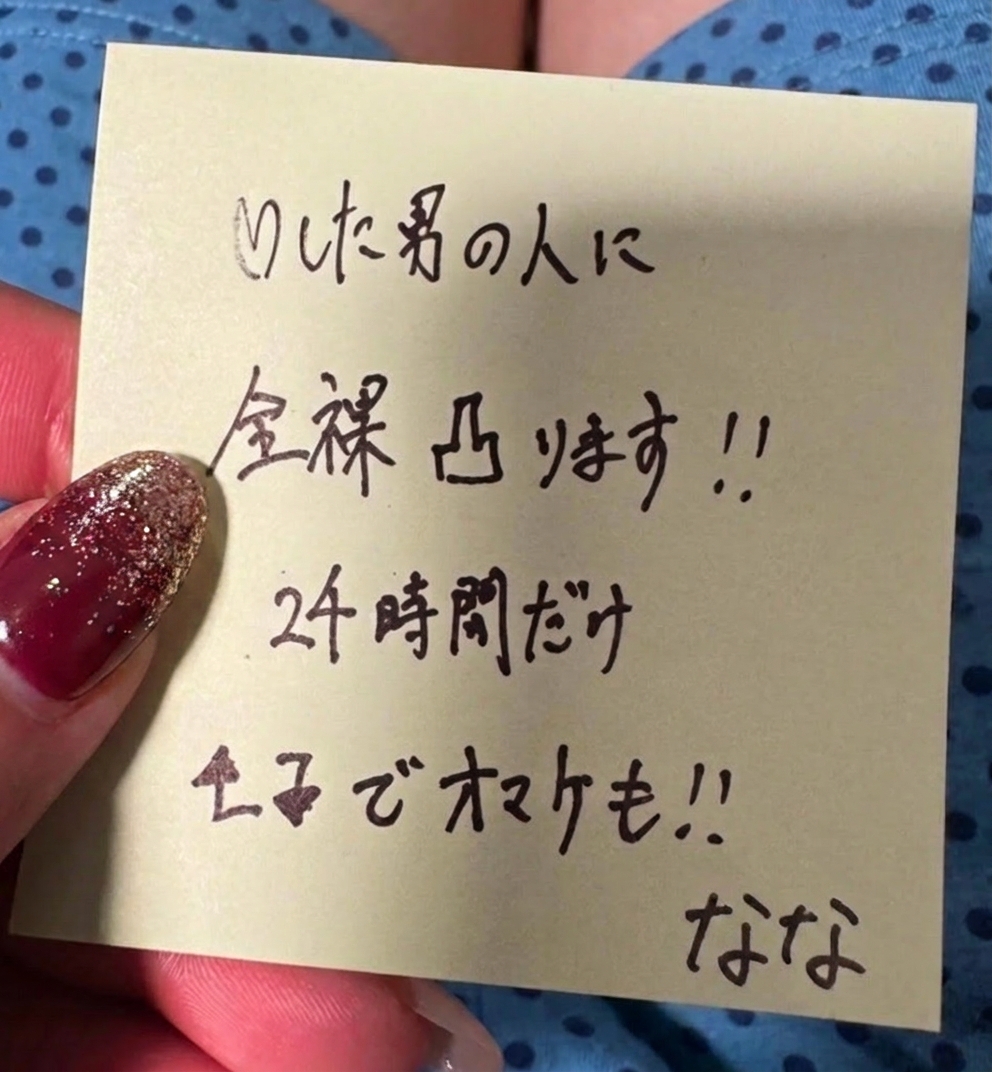 ♡した男の人に
全裸凸ります!!
24時間だけ
でオマケも!!
なな